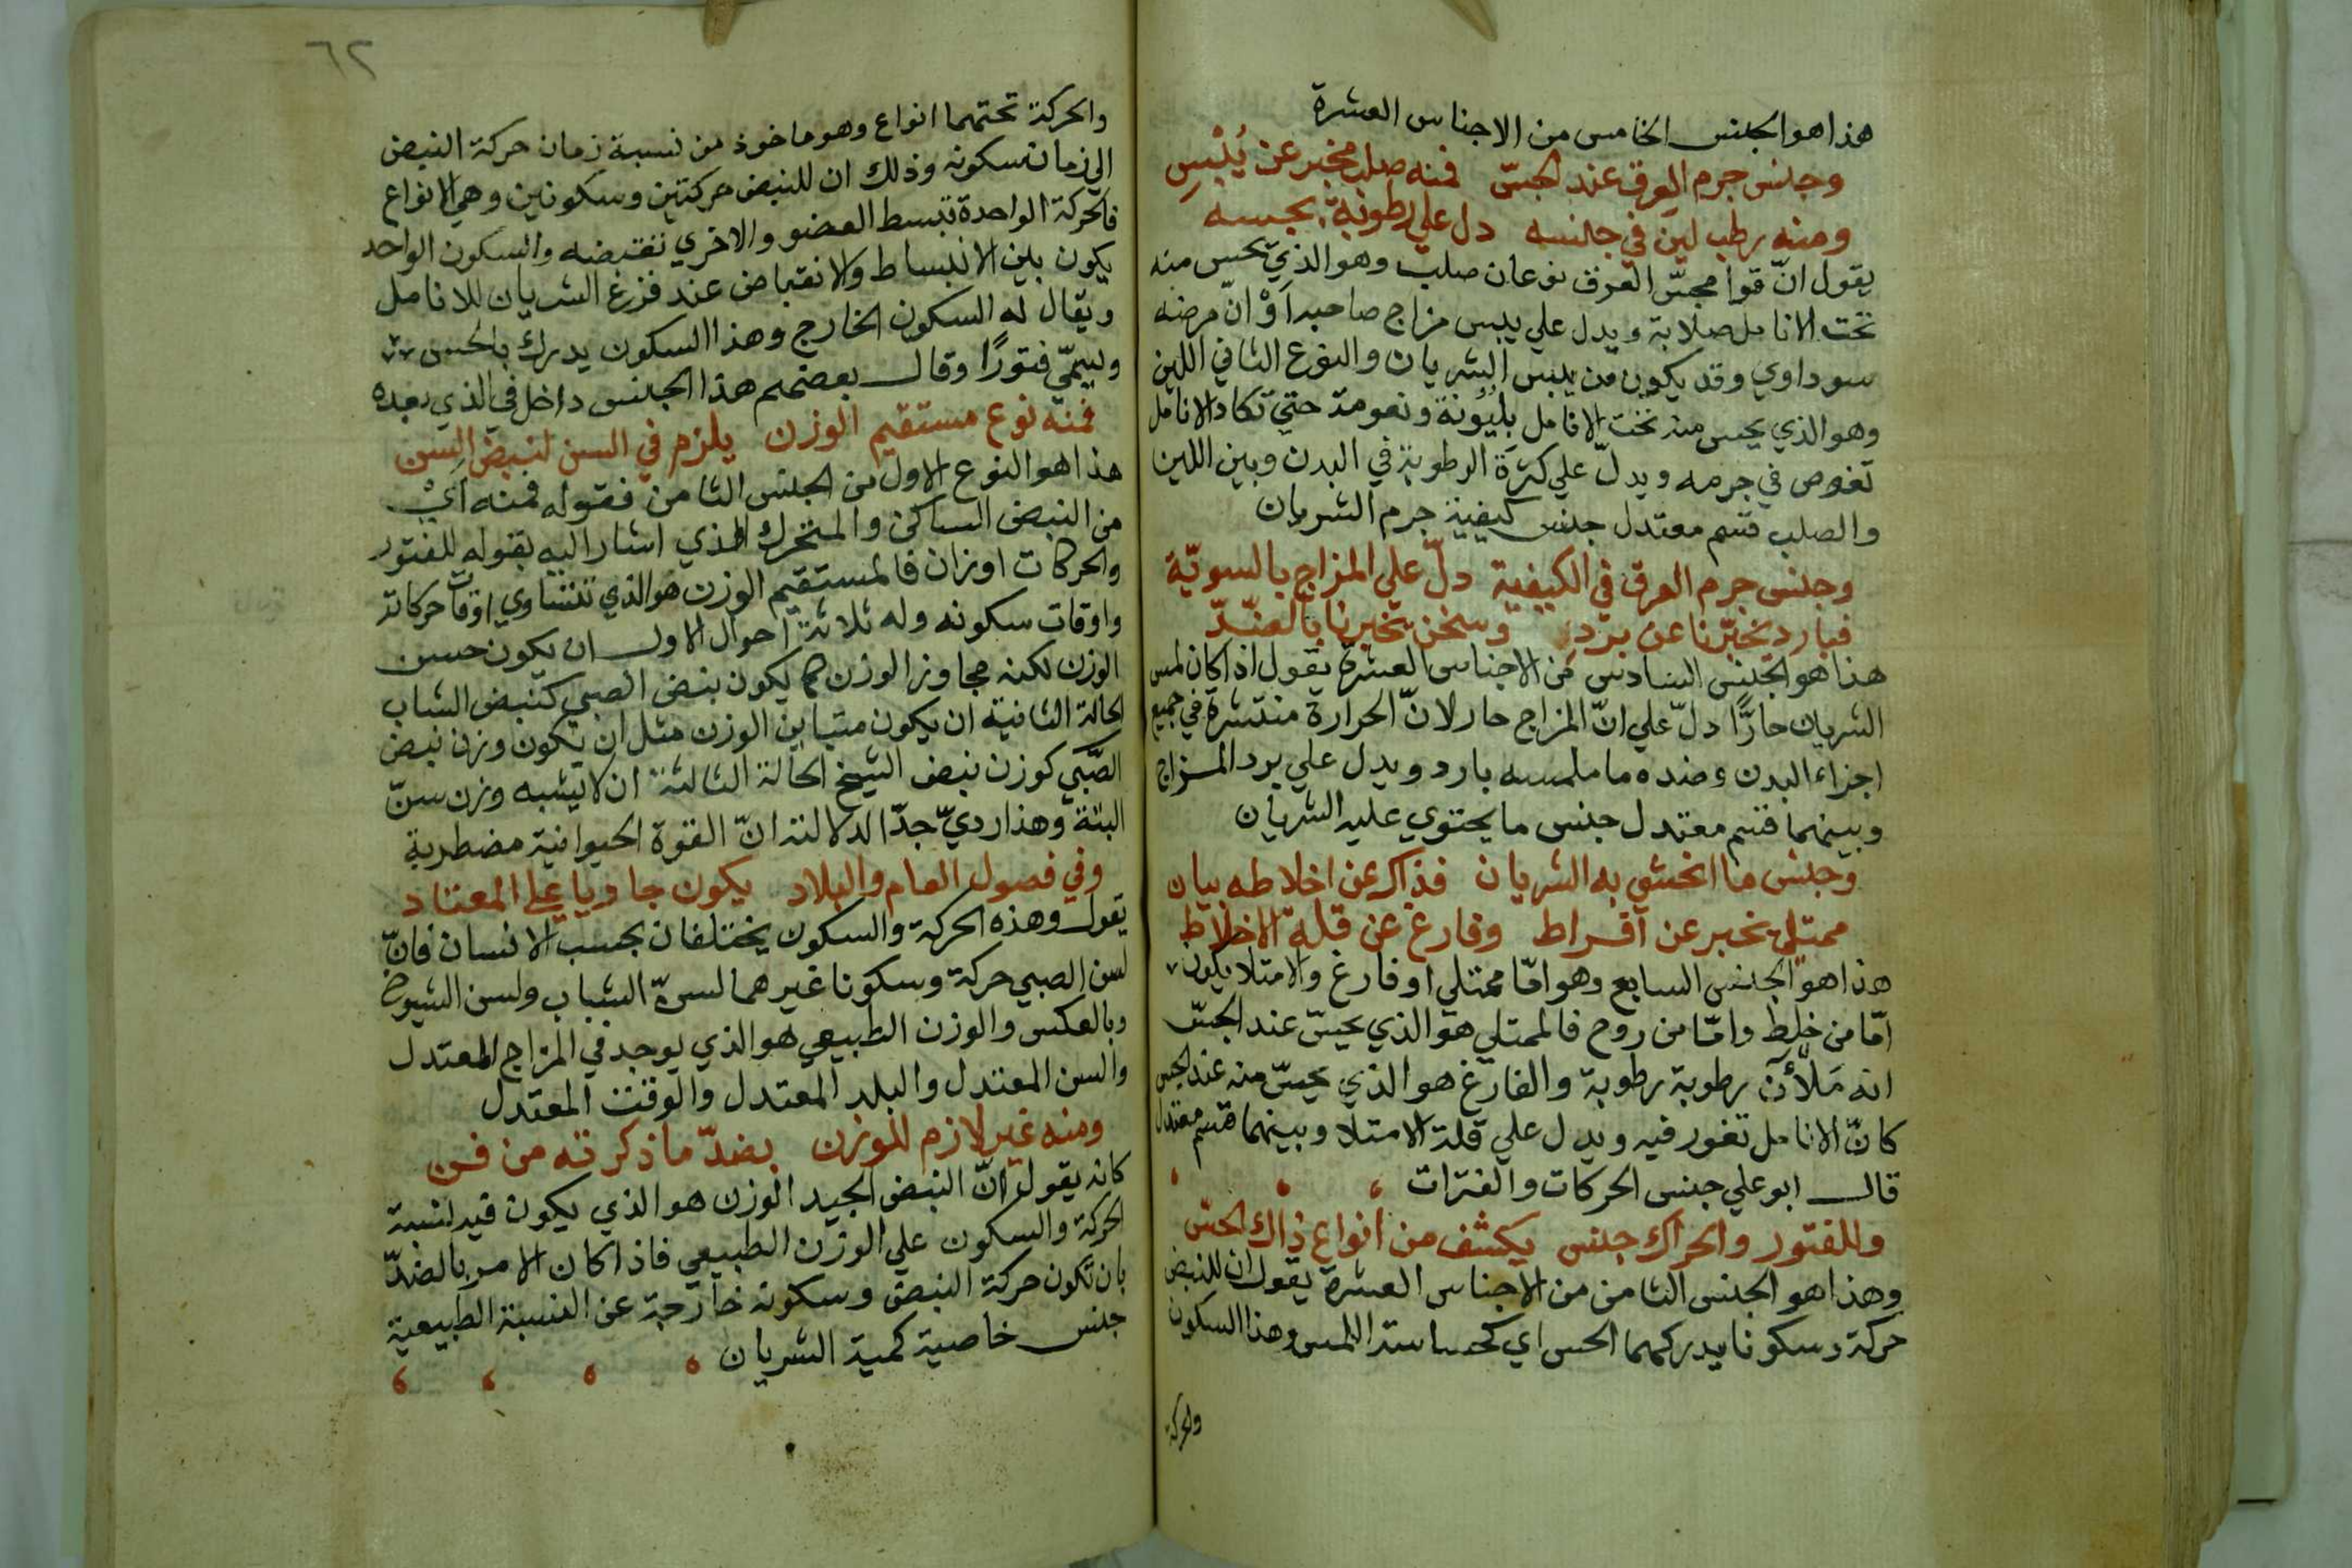 هذا هو الجنس الخامس من الاجناس العشرة
وجنس جرم العرق عند الجسّ فمنه صلب مخبر عن يُبْسِ
ومنه رطب لين في جانسه دل علي رطوبة بجسه
يقول انّ قوام مجسّ العرق نوعان صلب وهو الذي يحس منه
تحت الانامل صلابة ويدل علي يبس مزاج صاحبه اَوْ انّ مرضه
سوداوي وقد يكون من يبس الشريان والنوع الثاني اللين
وهو الذي يحس منه تحت الانامل بليُونة ونعومة حتي تكاد الانامل
تغوص في جرمه ويدلّ علي كثرة الرطوبة في البدن وبين اللين
والصلب قسم معتدل جنس كيفية جرم الشريان
وجنس جرم العرق في الكيفية دلّ علي المزاج بالسويّة
فبارد تخبرنا عن برد وسخن تخبرنا بالضدّ
هذا هو الجنس السادس من الاجناس العشرة يقول اذا كان لمس
الشريان حارًّا دلّ علي انّ المزاج حار لانّ الحرارة منتشرة في جميع
اجزاء البدن وضده ما ملمسه بارد ويدل علي برد المزاج
وبينهما قسم معتدل جنس ما يحتوي عليه الشريان
وجنس ما انحشي به الشريان فذاك عن اخلاطه بيان
ممتلي يخبر عن افراط وفارغ عن قلة الاخلاط
هذا هو الجنس السابع وهو امّا ممتلي او فارغ والامتلا يكون
امّا من خلط وامّا من روح فالممتلي هو الذي يحسّ عند الجسّ
انه مَلْآن رطوبة رطوبة والفارغ هو الذي يحسّ منه عند الجس
كانّ الانامل تغور فيه ويدل علي قلة الامتلا وبينهما قسم معتدل
قال ابو علي جنس الحركات والفترات
وللفتور والحراك جنس يكشف من انواع ذاك الحسّ
وهذا هو الجنس الثامن من الاجناس العشرة يقول ان للنبض
حركة وسكونا يدركهما الحس اي كحساسة اللمس وهذا السكون
والحركة
٦٢
والحركة تحتهما انواع وهو ماخوذ من نسبة زمان حركة النبض
الي زمان سكونه وذلك ان للنبض حركتين وسكونين وهي الانواع
فالحركة الواحدة تبسط العضو والاخري تقبضه والسكون الواحد
يكون بين الانبساط والانقباض عند فزغ الشريان للانامل
ويقال له السكون الخارج وهذا السكون يدرك بالحس
ويسمّي فتورًا وقال بعضهم هذا الجنس داخل في الذي بعده
فمنه نوع مستقيم الوزن يلزم في السن لنبض السن
هذا هو النوع الاول من الجنس الثامن فقوله فمنه اَيْ
من النبض الساكن والمتحرك الذي اشار اليه بقوله للفتور
والحركات اوزان فالمستقيم الوزن هو الذي تتساوي اوقات حركاته
واوقات سكونه وله ثلاثة احوال الاول ان يكون حسن
الوزن لكنه مجاوز الوزن كما يكون نبض الصبي كنبض الشاب
الحالة الثانية ان يكون متباين الوزن مثل ان يكون وزن نبض
الصّبي كوزن نبض الشيخ الحالة الثالثة ان لا يشبه وزن سنّ
البتة وهذا رديّ جدّا لدلالته انّ القوة الحيوانية مضطربة
وفي فصول العام والبلاد يكون جاويا علي المعتاد
يقول وهذه الحركة والسكون يختلفان بحسب الانسان فانّ
لسن الصبي حركة وسكونا غير هما لسنّ الشباب ولسن الشيوخ
وبالعكس والوزن الطبيعي هو الذي يوجد في المزاج المعتدل
والسن المعتدل والبلد المعتدل والوقت المعتدل
ومنه غير لازم للوزن بضدّ ما ذكرته من فن
كانه يقول انّ النبض الجيد الوزن هو الذي يكون فيه لنسبة
الحركة والسكون علي الوزن الطبيعي فاذا كان الامر بالضدّ
بان تكون حركة النبض وسكونه خارجة عن النسبة الطبيعية
جنس خاصية كمية الشريان